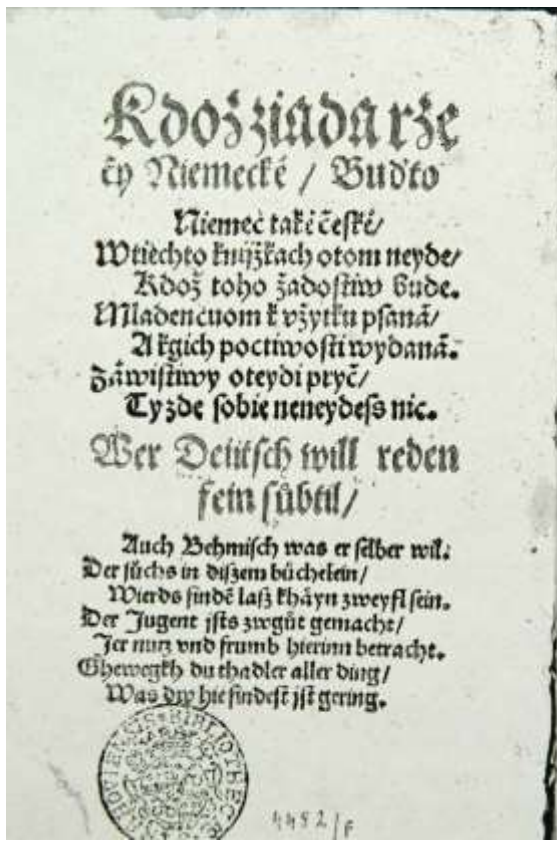 Kdož žiada rže
čy Niemecké / Buďto
Niemec také české/
W tiechto knijžkach otom neyde/
Kdož toho žadostiw bude.
Mladencuom k vžytku psanā/
A kgich poctiwosti wydanā.
Záwistiwy oteydi pryč/
Ty zde sobie neneydess nic.
Wer Deütsch will reden
fein sůbtil/
Auch Behmisch was er selber wil:
Der sůchs in diszem büchelein/
Wierds findē lasz khāyn zweyfl sein.
Der Jugent jsts zwgůt gemacht/
Jer nutz vnd frumb hierinn betracht.
Ghewegkh du thadler aller ding/
Was dw hie findest jst gering.
BIBLIOTHEC
4492/f